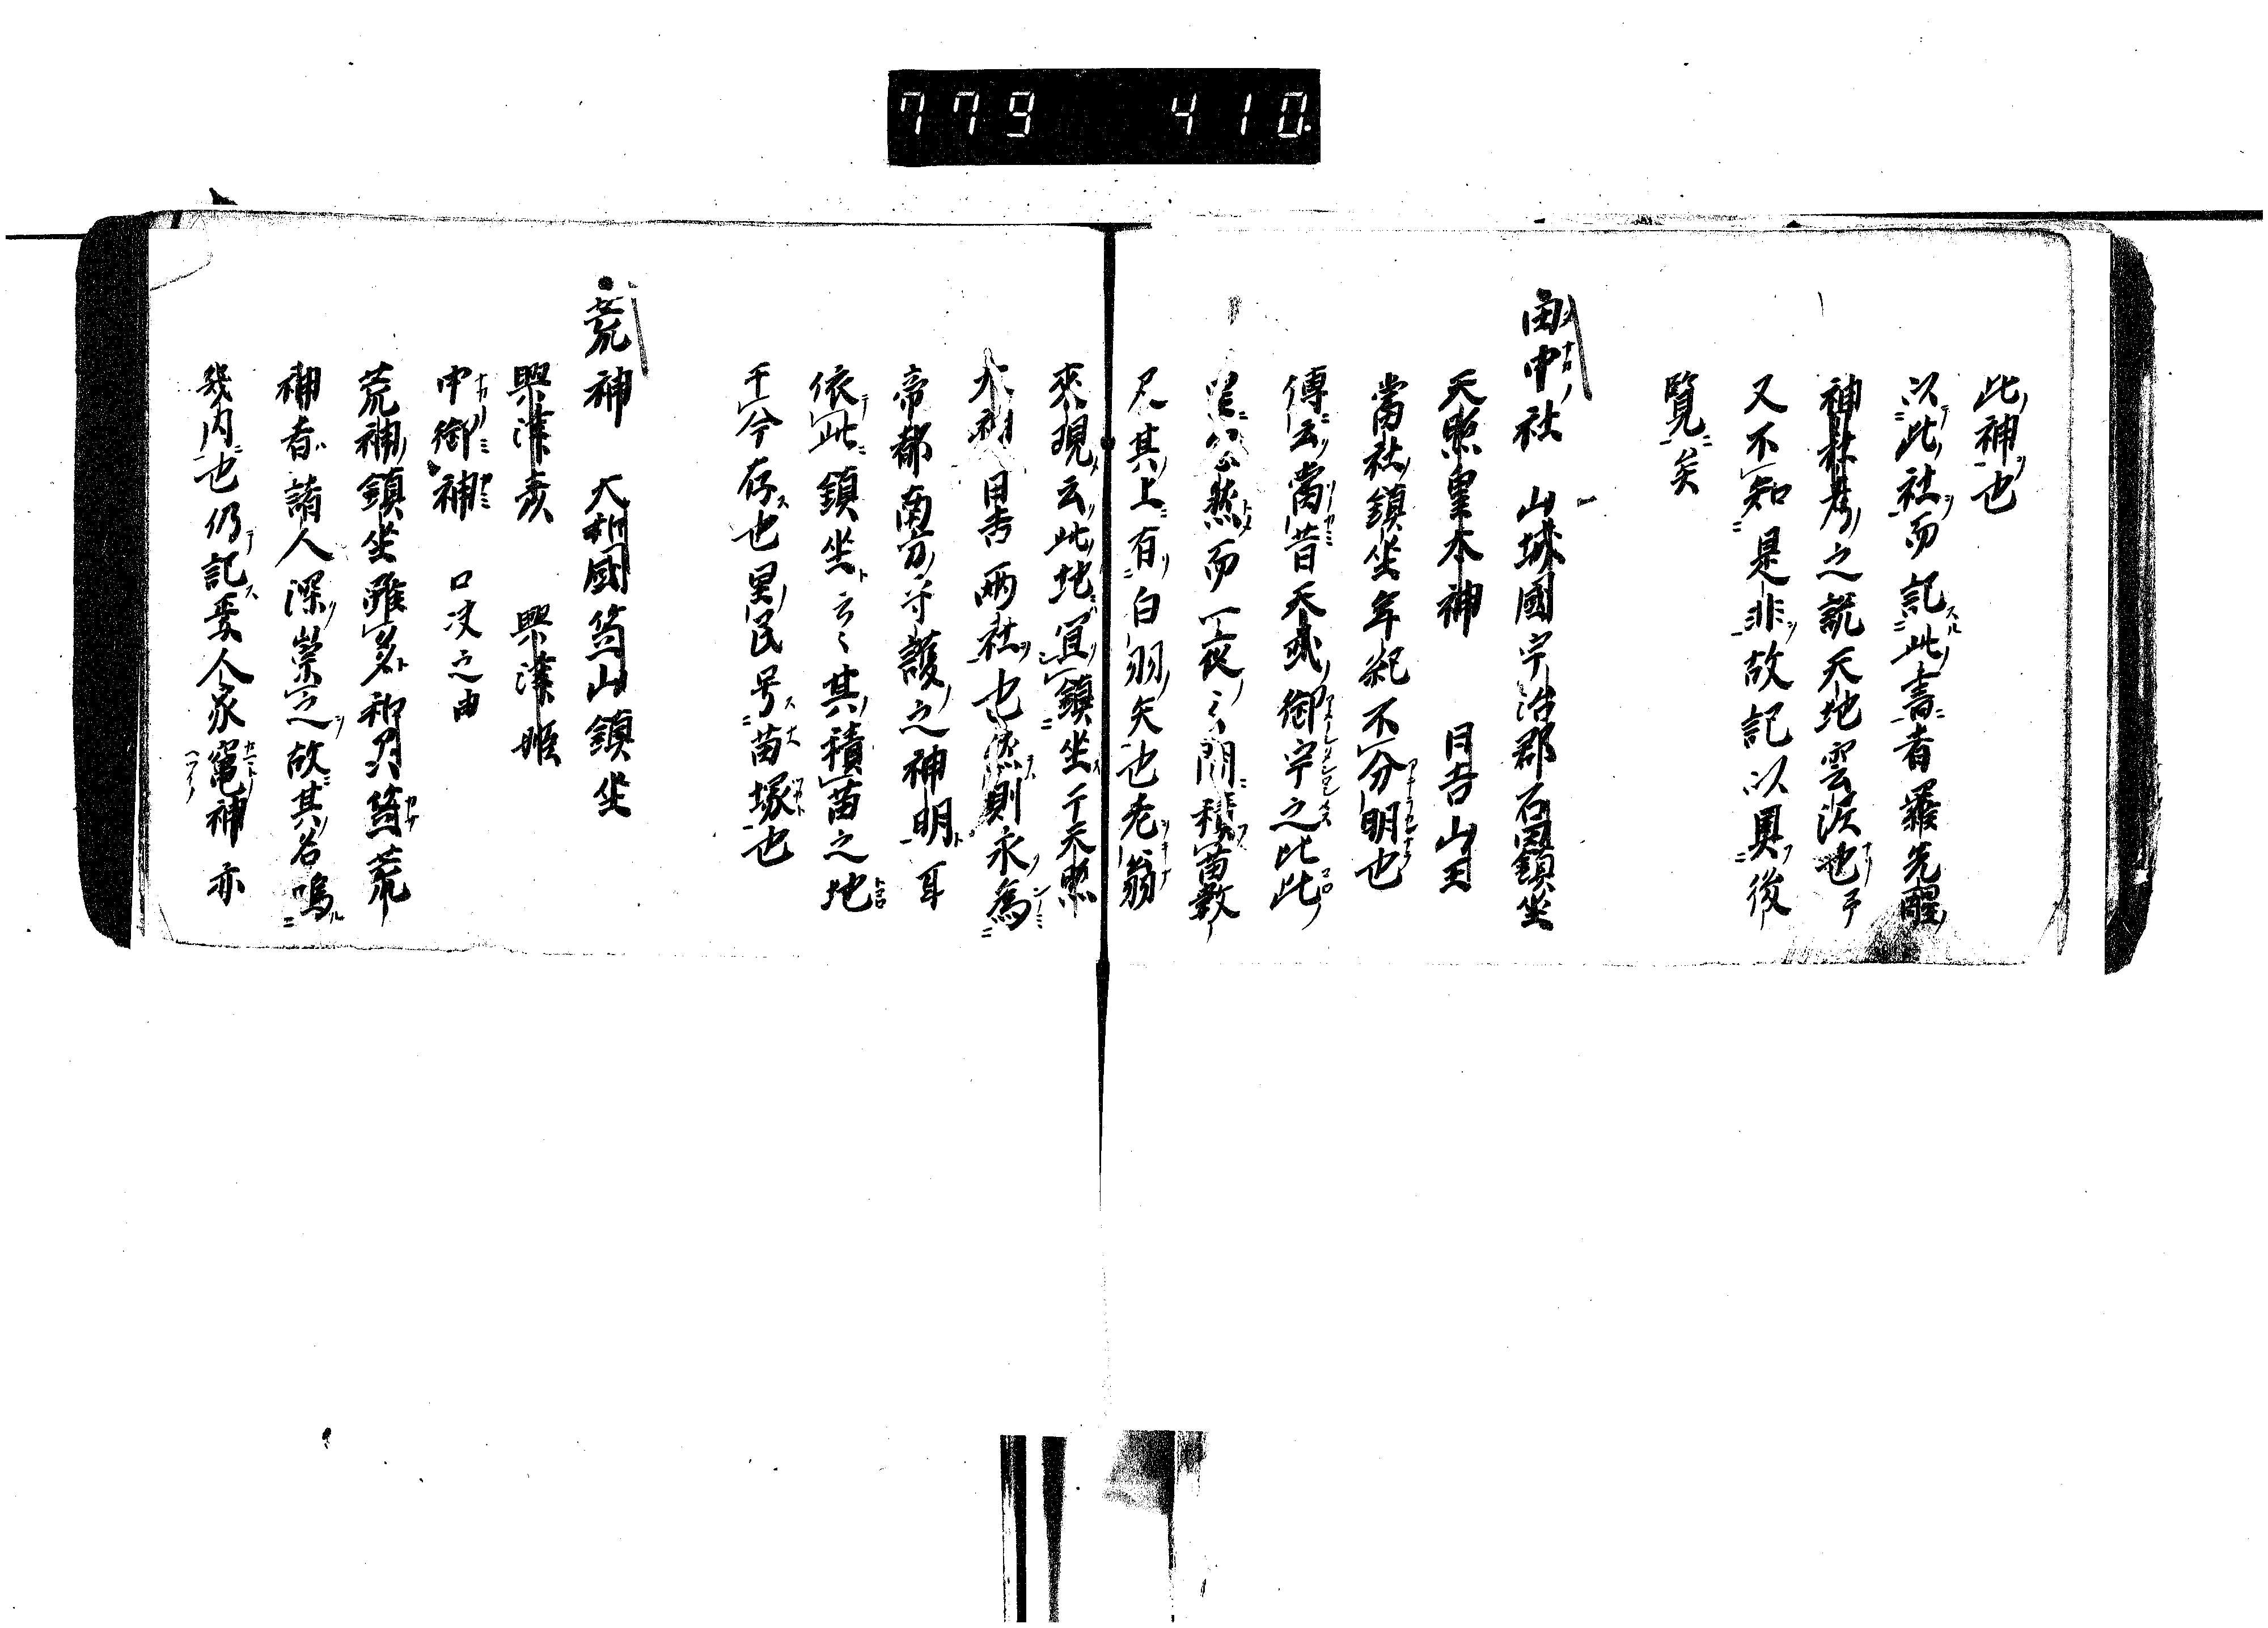 779 410
此神也
以此社而記此書者羅先醒
神社考之説天地雲涙也予
又不知是非故記以異後
覧矣
田中社 山城國宇治郡石田鎮坐
天照皇本神 日吉山王
當社鎮坐年紀不分明也
傳云當昔天武御宇之比此
里公然而一夜之間積苗數
尺其上有白羽矢也老翁
來現云此地宜鎮坐于天照
大神日吉兩社也然則永為
帝都南方守護之神明耳
依此鎮坐云々其積苗之地
于今存也里民号苗塚也
荒神 大和國笠山鎮坐
興津彦 興津姫
中御神 口决之由
荒神鎮坐雖多和乃笠荒
神者諸人深崇之故其名鳴
幾内也仍記焉人家竃神亦